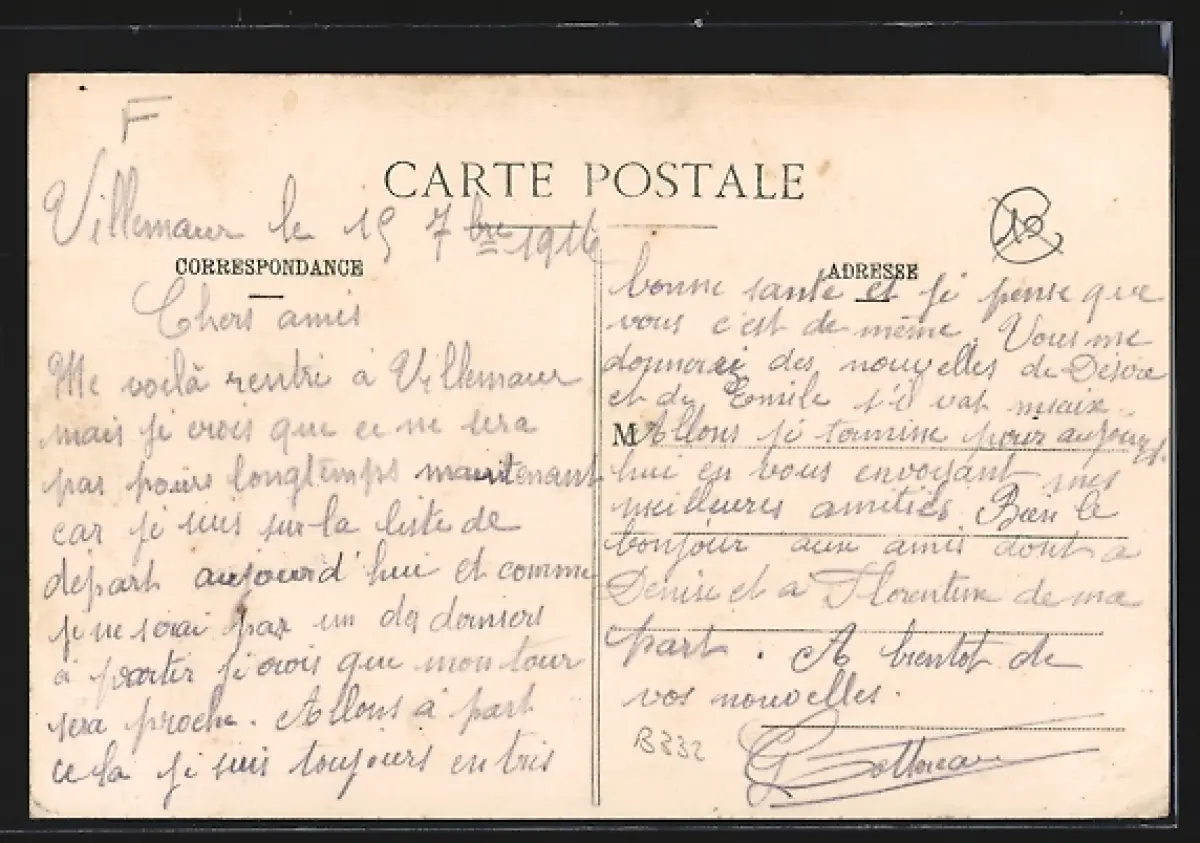 F
CARTE POSTALE
Villemaur le 15 7bre 1916
CORRESPONDANCE
Chers amis
Me voilà rentré à Villemaur
mais je crois que ce ne sera
pas pour longtemps maintenant
car je suis sur la liste de
départ aujourd'hui et comme
je ne serai pas un des derniers
à partir je crois que mon tour
sera proche. Allons à part
cela je suis toujours en très
10
ADRESSE
bonne santé et je pense que
vous c'est de même. Vous me
donnerez des nouvelles de Désiré
et de Emile s'il vat mieix.
M
Allons je termine pour aujourd'
hui en vous envoyant mes
meilleures amitiés. Bien le
bonjour aux amis dont a
Denise et a Florentine de ma
part. A bientot de
vos nouvelles.
B232